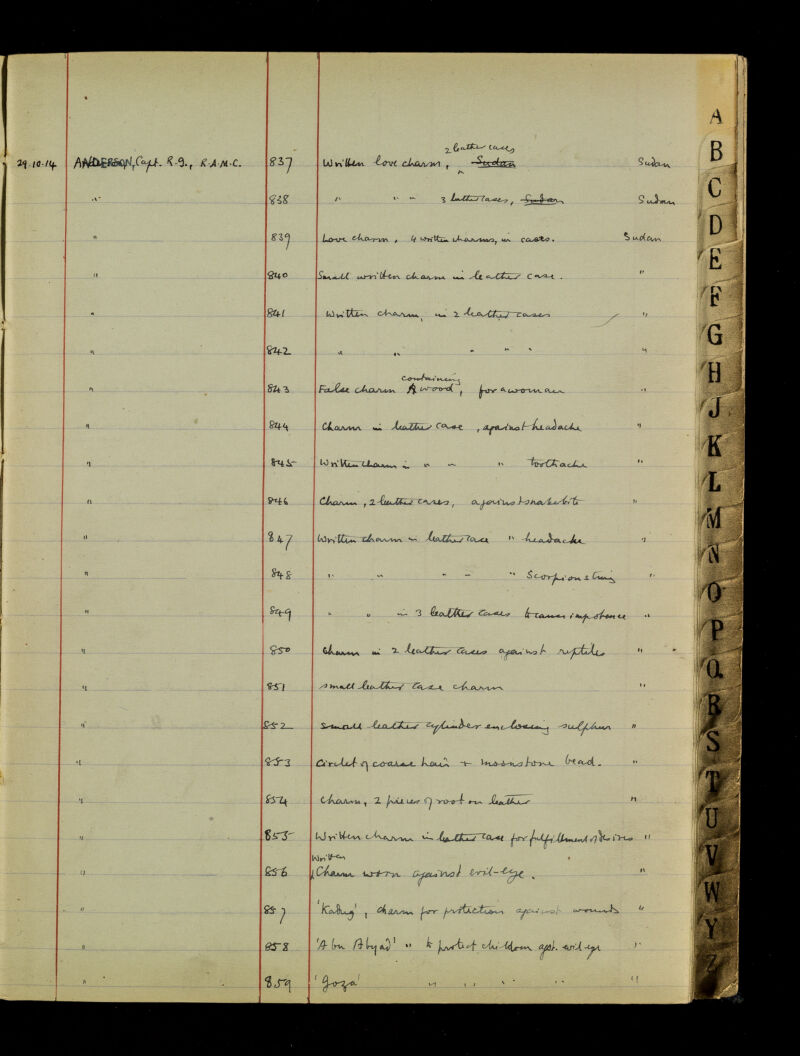 29.10.14 ANDERSON, Capt. R.G., R.A.M.C. 837 Written love charm, 2 leather cases Sudan Sudan
" 838 " " " 3 leather cases, Sudan Sudan
" 839 Love charm, 4 written charms, in cases. Sudan
" 840 Small written charm in leather case. "
" 841 Written charm, in 2 leather cases "
" 842 " " " " " "
" 843 False charm containing wood, for a woman "
" 844 Charm in leather case, against headache "
" 845 Written charm in " " " toothache "
" 846 Charm, 2 leather cases, against snake bite "
" 847 Written charm in leather case " headache "
" 848 " " " " " Scorpion sting "
" 849 " " in 3 leather cases to cause impotence "
" 850 Charm in 2 leather cases against reptiles "
" 851 small leather case charm "
" 852 Small leather cylinder enclosing sulphur "
" 853 Circlet of coarse hair + moonstone bead. "
" 854 Charm, 2 pieces of root on leather "
" 855 Written charm in leather case for fulfilment of desires "
" 856 Written Charm worn against evil-eye. "
" 857 'Kadug', charm for protection against wounds "
" 858 'Abu Abyad' " to protect children agst. evil eye "
" 859 'Goza' " " " " "
A
B
C
D
E
F
G
H
J
K
L
M
N
O
P
Q
R
S
T
U
V
W
Y
Z